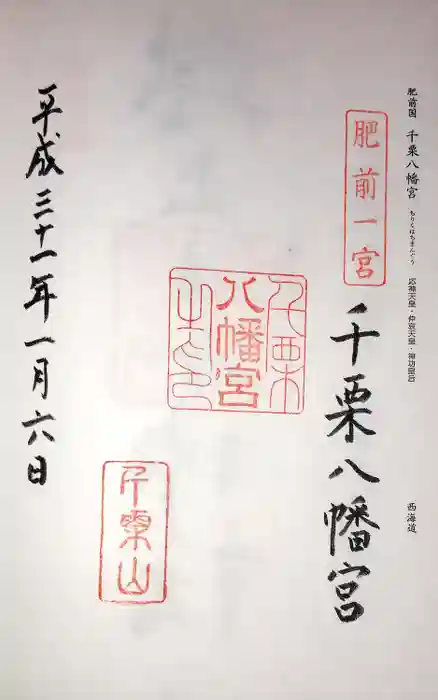 肥前国 千栗八幡宮 ちりくはちまんぐう 応神天皇・仲哀天皇・神功皇后 西海道
肥前一宮
千栗八幡宮
千栗
八幡宮
千栗山
平成三十一年一月六日